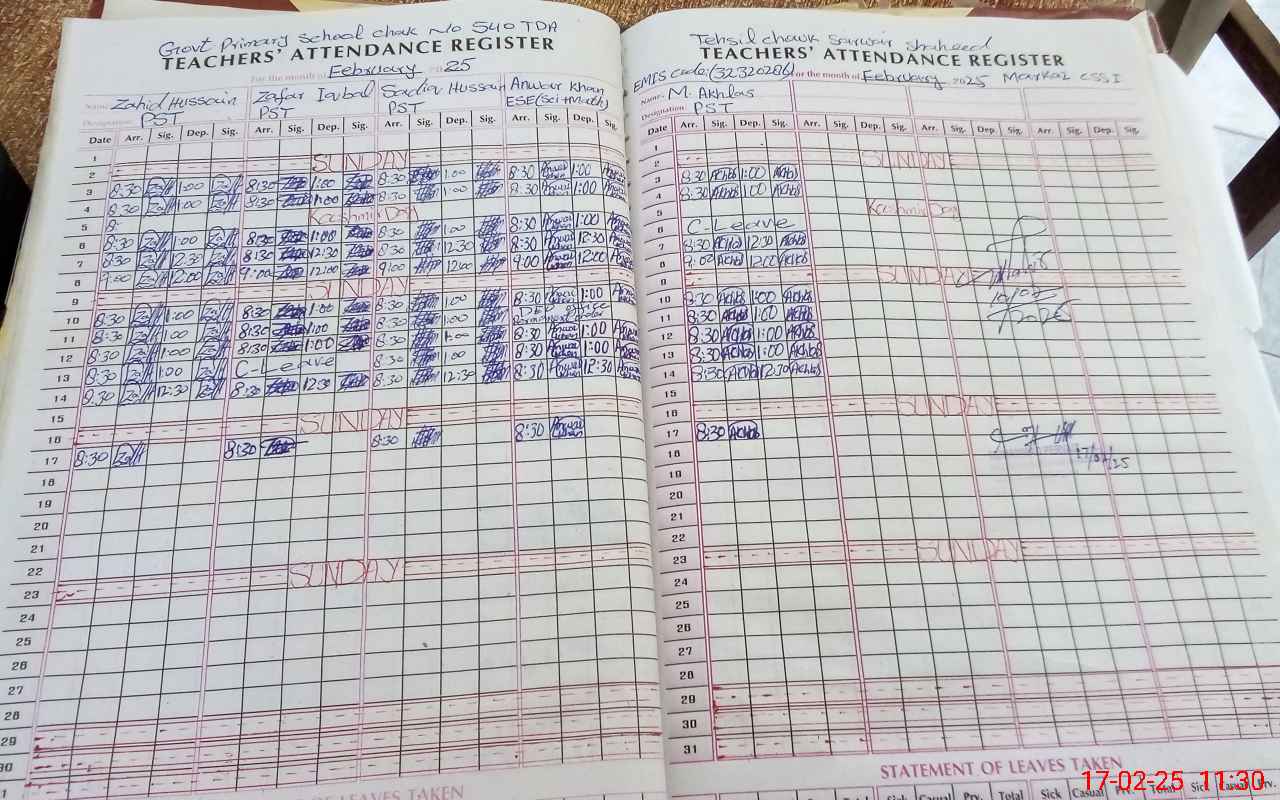 Govt Primary School chak No 540 TDA
TEACHERS' ATTENDANCE REGISTER
For the month of February 2025
Name: Zahid Hussain Zafar Iqbal Sadia Hussain Anwar Khan
Designation: PST PST PST ESE(Sci+Math)
Date Arr. Sig. Dep. Sig. Arr. Sig. Dep. Sig. Arr. Sig. Dep. Sig. Arr. Sig. Dep. Sig.
1
2 SUNDAY
3 8:30 1:00 8:30 1:00 8:30 1:00 8:30 Anwar Khan 1:00
4 8:30 1:00 8:30 1:00 8:30 1:00 8:30 Anwar Khan 1:00
5 8: Kashmir Day
6 8:30 1:00 8:30 1:00 8:30 1:00 8:30 Anwar Khan 1:00
7 8:30 12:30 8:30 12:30 8:30 12:30 8:30 Anwar Khan 12:30
8 9:00 12:00 9:00 12:00 9:00 12:00 9:00 Anwar Khan 12:00
9 SUNDAY
10 8:30 1:00 8:30 1:00 8:30 1:00 8:30 Anwar Khan 1:00
11 8:30 1:00 8:30 1:00 8:30 1:00
12 8:30 1:00 8:30 1:00 8:30 1:00 8:30 Anwar Khan 1:00
13 8:30 1:00 C-Leave 8:30 1:00 8:30 Anwar Khan 1:00
14 8:30 12:30 8:30 12:30 8:30 12:30 8:30 Anwar Khan 12:30
15
16 SUNDAY
17 8:30 8:30 8:30 8:30 Anwar Khan
18
19
20
21
22
23 SUNDAY
24
25
26
27
28
29
30
Tehsil chowk Sarwar Shaheed
TEACHERS' ATTENDANCE REGISTER
EMIS Code:(32320286) For the month of February 2025 Markaz CSSI
Name: M. Akhlas
Designation: PST
Date Arr. Sig. Dep. Sig. Arr. Sig. Dep. Sig. Arr. Sig. Dep. Sig. Arr. Sig. Dep. Sig.
1
2 SUNDAY
3 8:30 Akhlas 1:00 Akhlas
4 8:30 Akhlas 1:00 Akhlas
5 Kashmir Day
6 C-Leave
7 8:30 Akhlas 12:30 Akhlas
8 9:00 Akhlas 12:00 Akhlas
9 SUNDAY
10 8:30 Akhlas 1:00 Akhlas
11 8:30 Akhlas 1:00 Akhlas
12 8:30 Akhlas 1:00 Akhlas
13 8:30 Akhlas 1:00 Akhlas
14 8:30 Akhlas 12:30 Akhlas
15
16 SUNDAY
17 8:30 Akhlas
18 17/02/25
19
20
21
22
23 SUNDAY
24
25
26
27
28
29
30
31
STATEMENT OF LEAVES TAKEN
Sick Casual Prv. Total Sick Casual Prv. Total Sick Casual Prv.
17-02-25 11:30